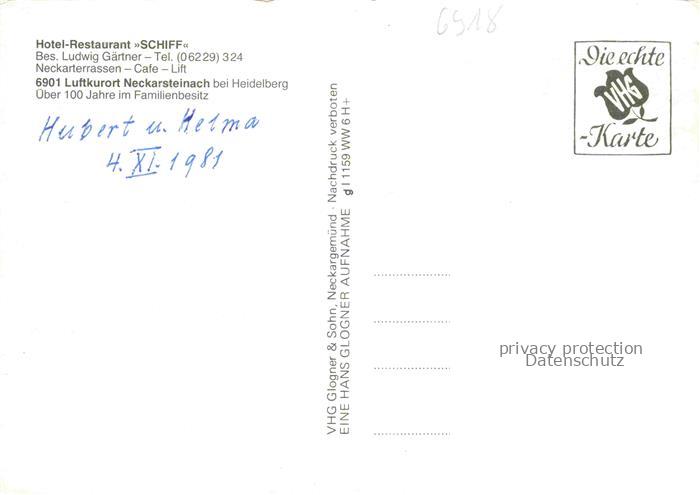 Hotel-Restaurant »SCHIFF«
Bes. Ludwig Gärtner – Tel. (06229) 324
Neckarterrassen – Cafe – Lift
6901 Luftkurort Neckarsteinach bei Heidelberg
Über 100 Jahre im Familienbesitz
Hubert u. Helma
4. XI. 1981
VHG Glogner & Sohn, Neckargemünd · Nachdruck verboten
EINE HANS GLOGNER AUFNAHME g I 1159 WW 6 H+
6918
Die echte
VHG
-Karte
privacy protection
Datenschutz